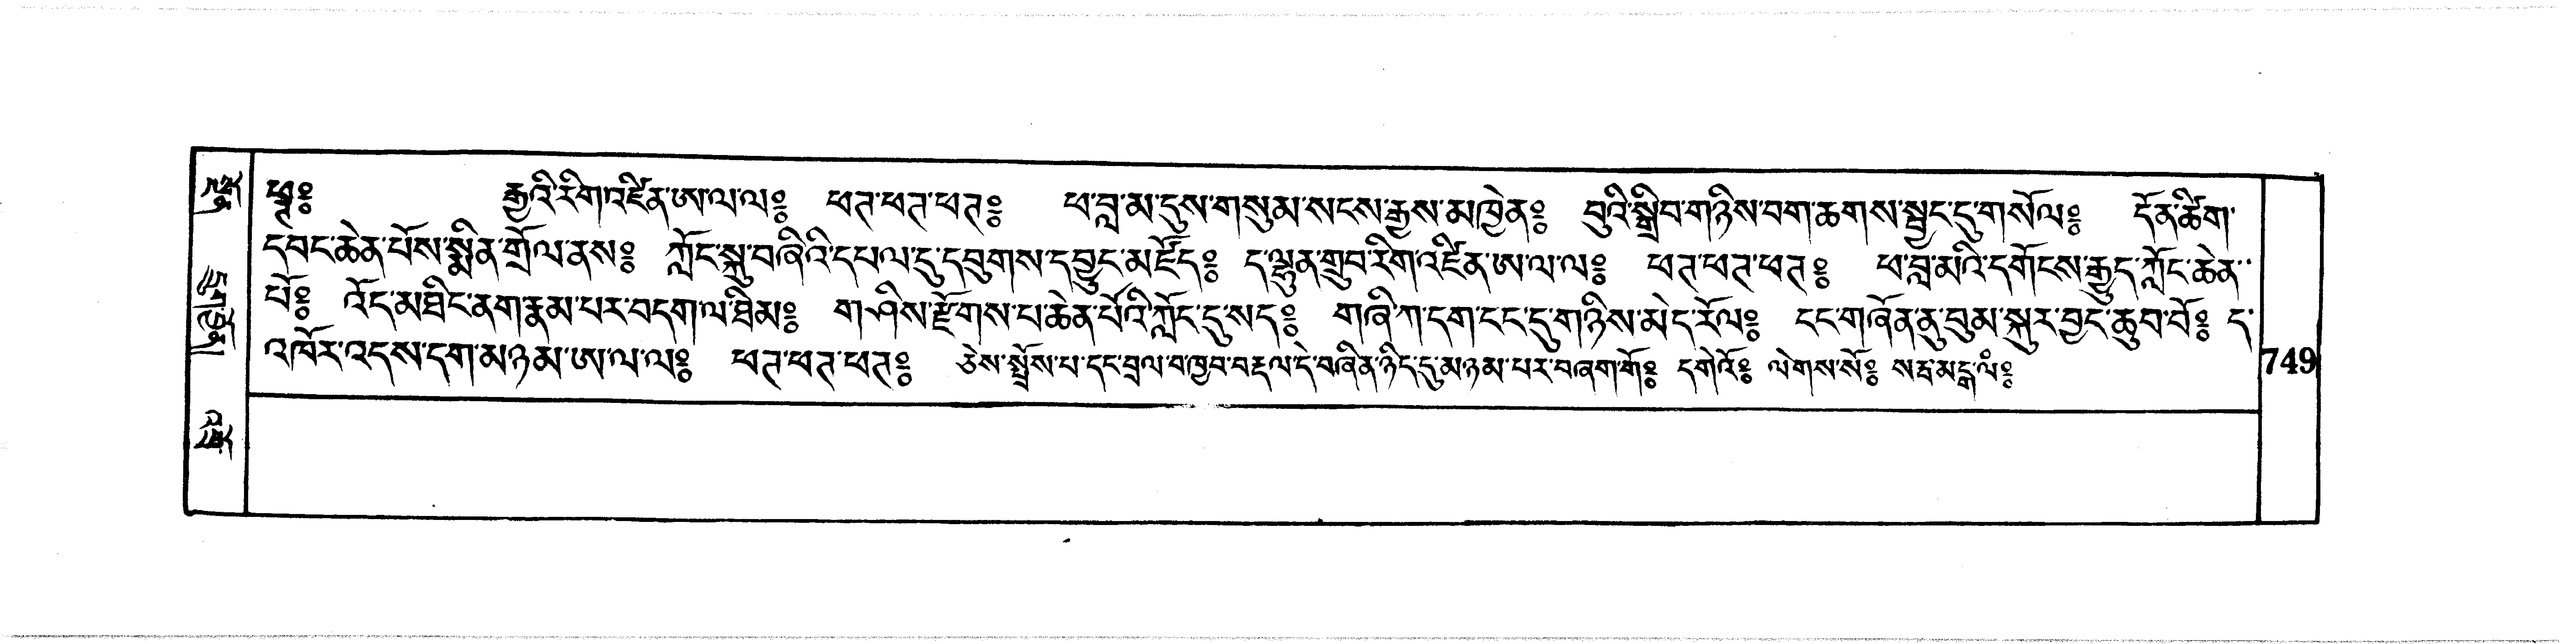 ཕཊ༔ རྒྱའི་རིག་འཛིན་ཨ་ལ་ལ༔ ཕཊ་ཕཊ་ཕཊ༔ ཕ་བླ་མ་དུས་གསུམ་སངས་རྒྱས་མཁྱེན༔ བུའི་སྒྲིབ་གཉིས་བག་ཆགས་སྦྱང་དུ་གསོལ༔ དོན་ཚིག་
དབང་ཆེན་པོས་སྨིན་གྲོལ་ནས༔ ཀློང་སྐུ་བཞིའི་དཔལ་དུ་དབུགས་དབྱུང་མཛོད༔ ད་ལྷུན་གྲུབ་རིག་འཛིན་ཨ་ལ་ལ༔ ཕཊ་ཕཊ་ཕཊ༔ ཕ་བླ་མའི་དགོངས་རྒྱུད་ཀློང་ཆེན་
པོ༔ འོད་མཐིང་ནག་རྣམ་པར་བདག་ལ་ཐིམ༔ གཤིས་རྫོགས་པ་ཆེན་པོའི་ཀློང་དུ་སད༔ གཞི་ཀ་དག་ངང་དུ་གཉིས་མེད་རོལ༔ དང་གཞོན་ནུ་བུམ་སྐུར་བྱང་ཆུབ་བོ༔ ད་
འཁོར་འདས་དག་མཉམ་ཨ་ལ་ལ༔ ཕཊ་ཕཊ་ཕཊ༔ ཅེས་སྤྲོས་པ་དང་བྲལ་བ་ཁྱབ་བརྡལ་དེ་བཞིན་ཉིད་དུ་མཉམ་པར་བཞག་གོ༔ དགེའོ༔ ལེགས་སོ༔ སརྦ་མངྒ་ལཾ༔
749